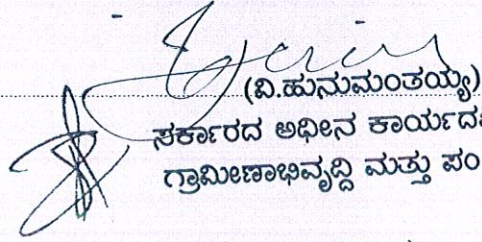 (ವಿ.ಹನುಮಂತಯ್ಯ)
ಸರ್ಕಾರದ ಅಧೀನ
ಗ್ರಾಮೀಣಾಭಿವೃದ್ಧಿ ಮತ್ತು